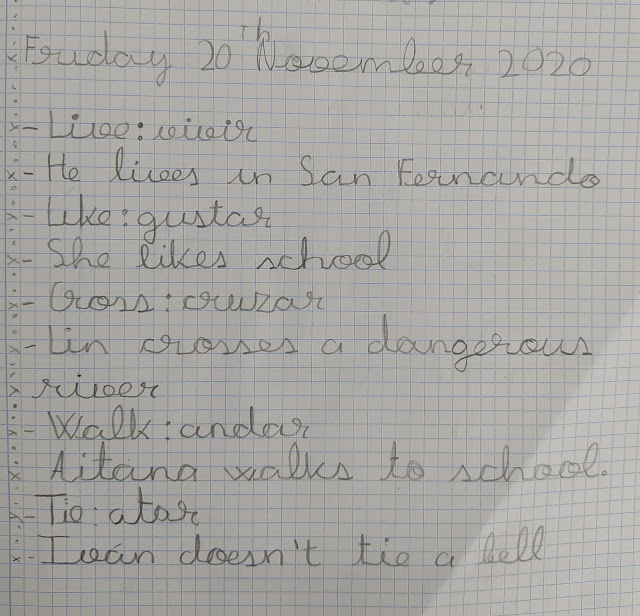 Friday 20th November 2020
- Live: vivir
- He lives in San Fernando
- Like: gustar
- She likes school
- Cross: cruzar
- Lin crosses a dangerous
river
- Walk: andar
Aitana walks to school.
- Tie: atar
- Iván doesn't tie a bell